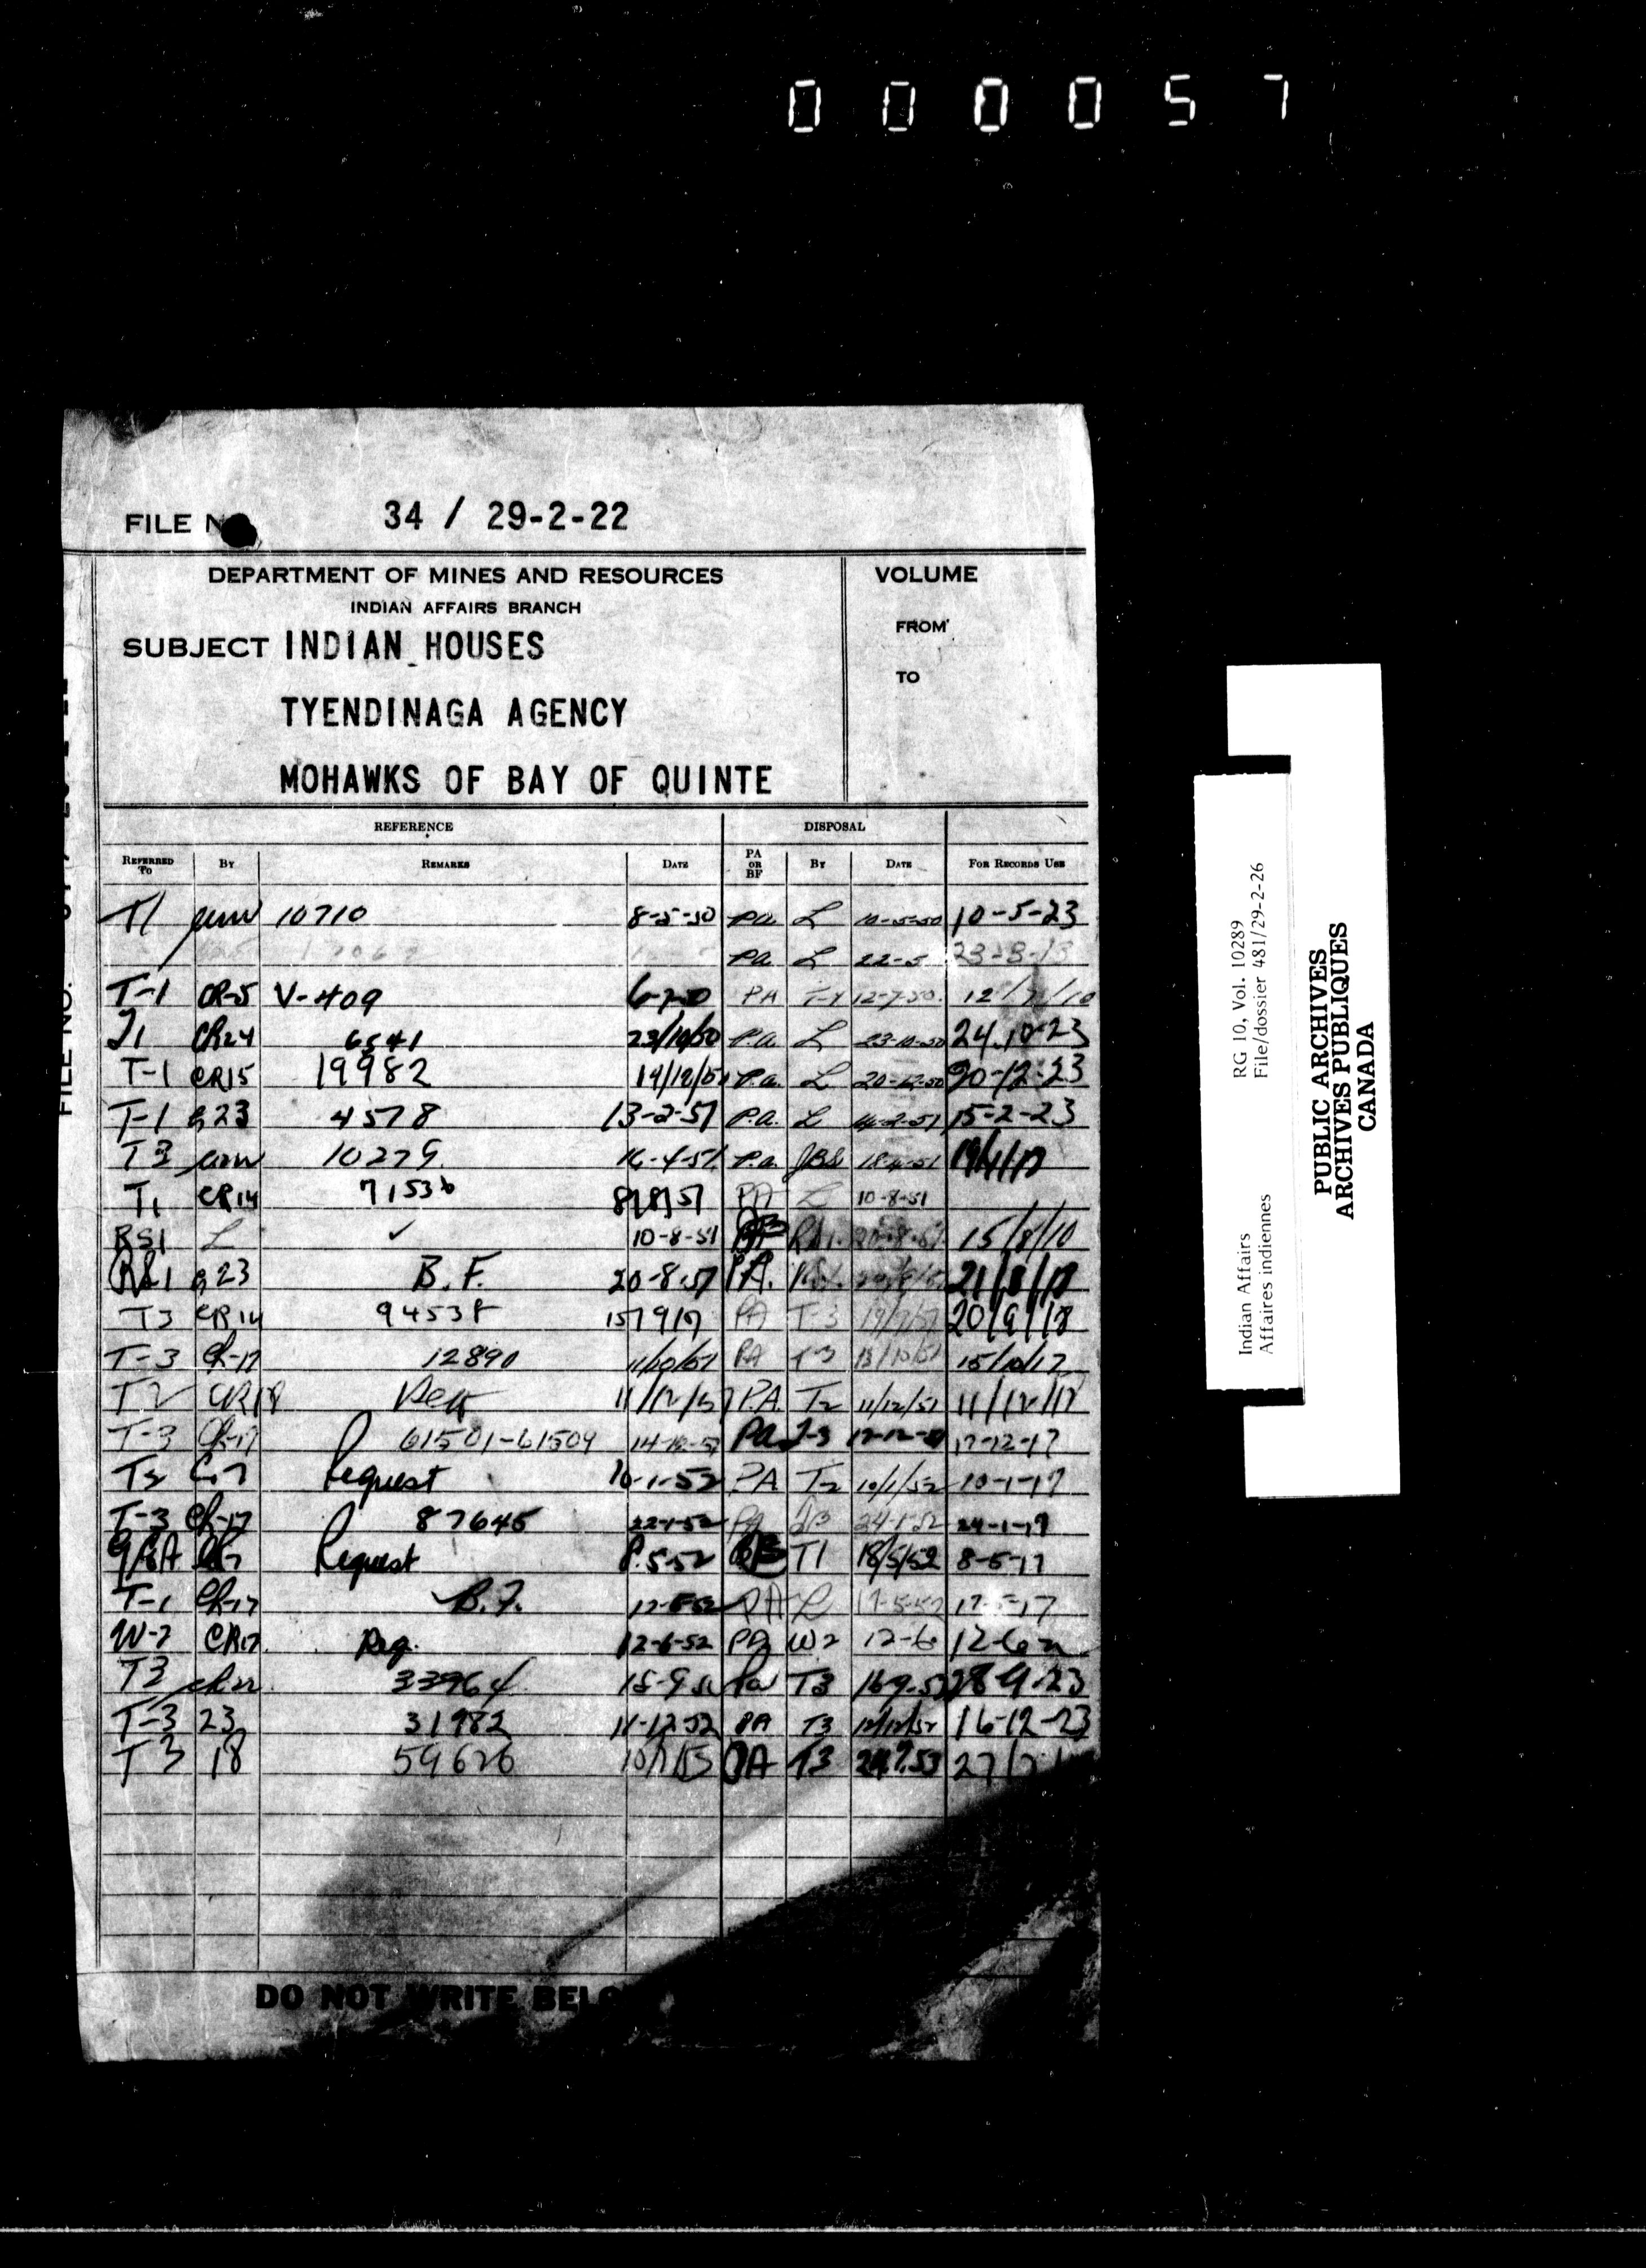 000057
FILE NO. 34 / 29-2-22
DEPARTMENT OF MINES AND RESOURCES
INDIAN AFFAIRS BRANCH
SUBJECT INDIAN HOUSES
TYENDINAGA AGENCY
MOHAWKS OF BAY OF QUINTE
VOLUME
FROM
TO
REFERENCE DISPOSAL
REFERRED TO BY REMARKS DATE PA OR BF BY DATE FOR RECORDS USE
T1 10710 8-5-50 pa L 10-5-50 10-5-23
pa L 22-5
T-1 CR-5 V-409 6-7-50 PA 12-7-50 12/7/10
T1 CR24 6541 23/10/50 P.a. L 23-10-50 24.10-23
T-1 CR15 19982 19/12/50 P.a. L 20-12-50 20-12-23
T-1 23 4578 13-2-51 P.a. L 15-2-23
T3 10279 16-4-51 P.a. JBS 18-4-51
T1 CR14 71536 8/8/51 PA L 10-8-51
RS1 L ✓ 10-8-51 15/8/10
RS1 23 B.F. 20-8-51 P.A. 21/8/18
T3 CR14 94538 PA T3 20/9/18
T-3 CR-17 12890 11/10/51 PA T3 13/10/51 15/10/17
T2 CR18 11/12/51 P.A. T2 11/12/51 11/12/18
T-3 CR-17 61501-61509 PA T-3 17-12-17
T2 Request 10-1-52 PA T2 10/1/52 10-1-17
T-3 CR-17 87645 22-1-52 PA 24-1-52 24-1-17
Request 8.5-52 T1 18/5/52
T-1 CR-17 B.F. PA L 17-5-52 17-5-17
W-2 CR17 Req. 12-6-52 PA W2 12-6
T3 33964 Pa T3
T-3 23 31982 11-12-52 PA T3 12/12/52 16-12-23
T3 18 59626 PA T3 24.7.53
DO NOT WRITE BELO
FILE NO.
Indian Affairs RG 10, Vol. 10289
Affaires indiennes File/dossier 481/29-2-26
PUBLIC ARCHIVES
ARCHIVES PUBLIQUES
CANADA